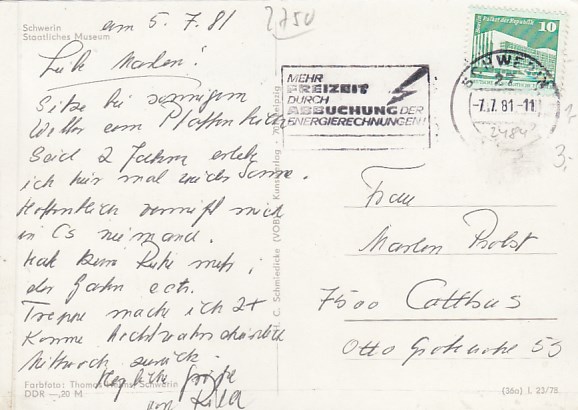 Schwerin
Staatliches Museum
am 5.7.81
2750
Liebe Marlen!
Sitze bei sonnigem
Wetter am Pfaffenteich
Seid 2 Jahren erlebe
ich hier mal wieder Sonne.
Hoffentlich vermißt mich
in Cs niemand.
Hab keine Ruhe mehr,
der Garten ect.
Treppe mache ich 2x
Komme höchstwahrscheinlich
Mittwoch zurück.
Herzliche Grüße
von
Farbfoto: Thomas Helms, Schwerin
DDR — ,20 M
H. C. Schmiedicke (VOB), Kunstverlag · 705 Leipzig
MEHR
FREIZEIT
DURCH
ABBUCHUNG DER
ENERGIERECHNUNGEN!
Palast der Republik
10
SCHWERIN
27
-7.7.81-11
2484
3,-
Frau
Marlen Probst
7500 Cottbus
Otto Grotewohl 55
(36a) L 23/78